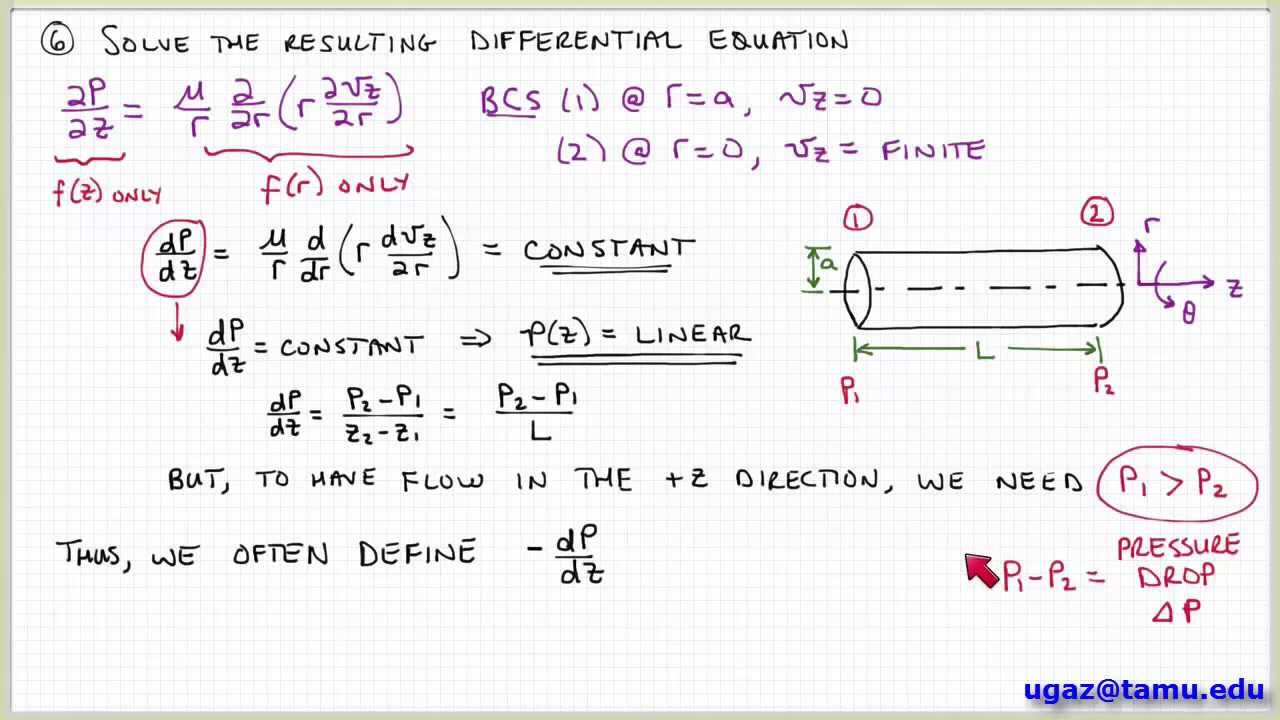 ⑥ SOLVE THE RESULTING DIFFERENTIAL EQUATION
∂P/∂z = μ/r ∂/∂r (r ∂vz/∂r)
BCS (1) @ r=a, vz=0
(2) @ r=0, vz = FINITE
f(z) ONLY
f(r) ONLY
dP/dz = μ/r d/dr (r dvz/∂r) = CONSTANT
① ②
r
a
z
θ
L
P1 P2
dP/dz = CONSTANT ⇒ P(z) = LINEAR
dP/dz = P2-P1/z2-z1 = P2-P1/L
BUT, TO HAVE FLOW IN THE +z DIRECTION, WE NEED P1 > P2
THUS, WE OFTEN DEFINE -dP/dz
P1-P2 = PRESSURE
DROP
ΔP
ugaz@tamu.edu